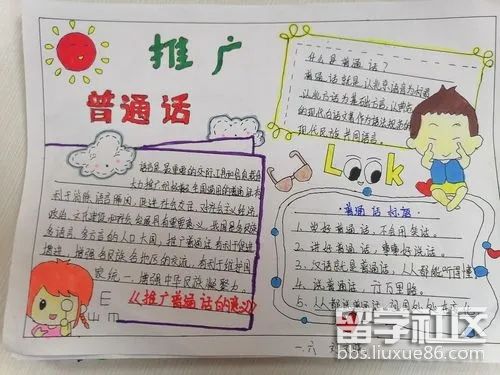 推广
普通话
什么是普通话？
普通话就是以北京语音为标准
以北方话为基础方言,以典范
的现代白话文著作为语法规范的
现代民族共同语言。
Look
语言是最重要的交际工具和信息载体
大力推广
利于消除语言隔阂,促进社会交往,对社会主义经济
政治、文化建设和社会发展具有重要意义。我国是多民族
多语言、多方言的人口大国,推广普通话有利于促进
增进各民族各地区的交流,有利于维护国
家统一,增强中华民族凝聚力。
《推广普通话的意义》
E
普通话标语
1、学好普通话,
2、讲好普通话,
3、汉语就是普通话,人人都能听得懂
4、说普通话,行万里路。
5、人人都说普通话,
一.六
留学社区
bbs.liuxue86.com